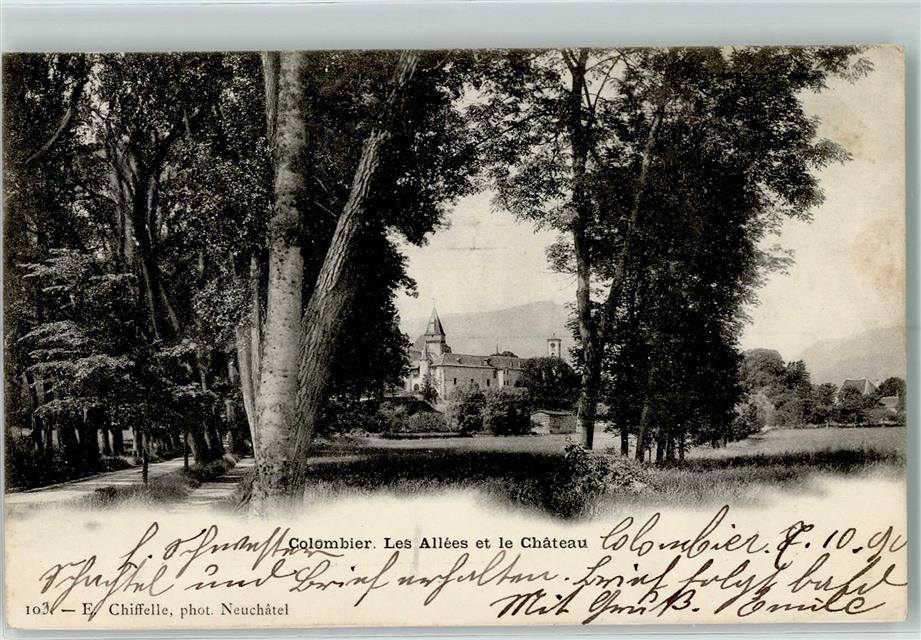 Colombier. Les Allées et le Château
Colombier. 7. 10. 90
l. Schwester
Schachtel und Brief erhalten. Brief folgt bald
Mit Gruß. Emile
103. — E. Chiffelle, phot. Neuchâtel